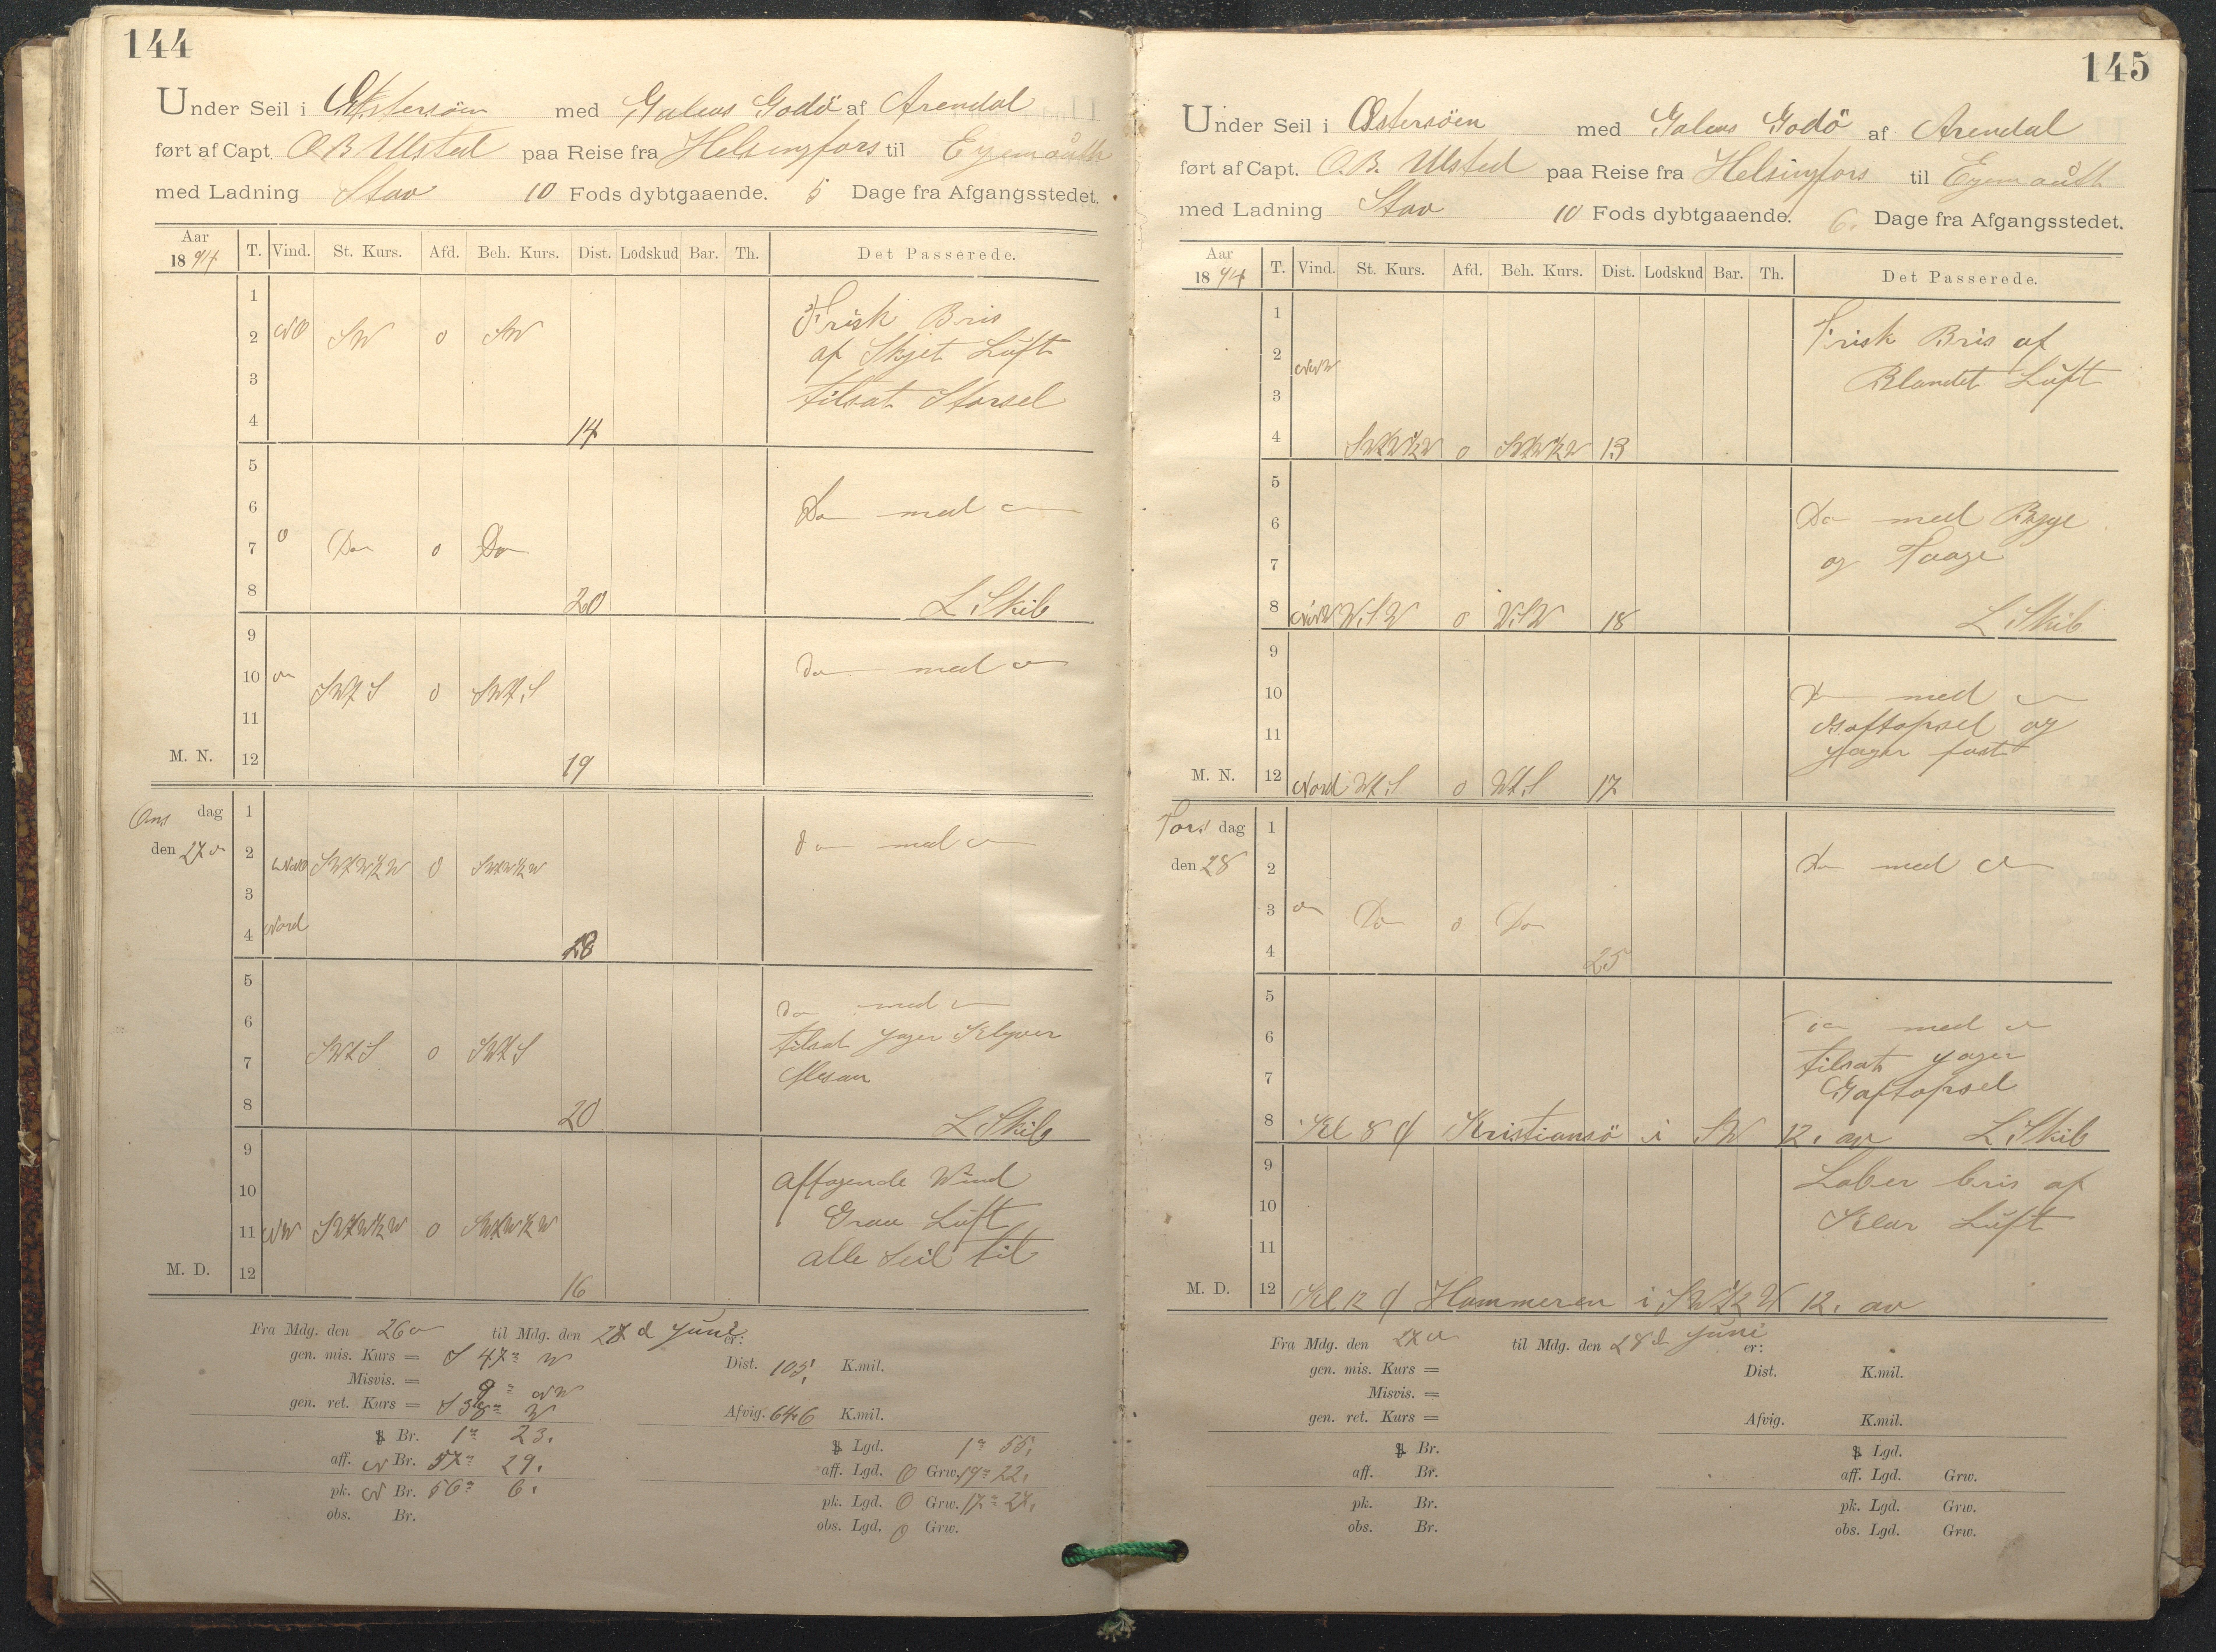 144
Under Seil i Østersöen med Galeas Godö af Arendal
ført af Capt. O B Ulsted paa Reise fra Helsingfors til Eyemouth
med Ladning Stav 10 Fods dybtgaaende. 5 Dage fra Afgangsstedet.
Aar 1894 T. Vind. St. Kurs. Afd. Beh. Kurs. Dist. Lodskud Bar. Th. Det Passerede.
1 Frisk Bris
2 NO SW 0 SW af Skyet Luft
3 tilsat Storsel
4 14
5
6 Do med
7 O Do 0 Do
8 20 L. Skib
9
10 SWtS 0 SWtS Do med
11
M. N. 12 19
Ons dag 1
den 27 2 SWtW½W 0 SWtW½W do med
3
4 Nord 28
5
6 do med
tilsat Jager Klyver
7 SWtS 0 SWtS Mesan
8 20 L. Skib
9
10 Aftagende Wind
11 NW SWtW½W 0 SWtW½W Graa Luft
M. D. 12 16 alle Seil til
Fra Mdg. den 26 til Mdg. den 27 d Juni er:
gen. mis. Kurs = S 47° W Dist. 105, K.mil.
Misvis. = 9° NW
gen. ret. Kurs = S 38° W Afvig. 64,6 K.mil.
Br. 1° 23, Lgd. 1° 55,
aff. N Br. 57° 29, aff. Lgd. O Grw. 19° 22,
pk. N Br. 56° 6, pk. Lgd. O Grw. 17° 27,
obs. Br. obs. Lgd. O Grw.
145
Under Seil i Østersöen med Galeas Godö af Arendal
ført af Capt. O. B. Ulsted paa Reise fra Helsingfors til Eyemouth
med Ladning Stav 10 Fods dybtgaaende. 6. Dage fra Afgangsstedet.
Aar 1894 T. Vind. St. Kurs. Afd. Beh. Kurs. Dist. Lodskud Bar. Th. Det Passerede.
1 Frisk Bris af
2 NNW Blandet Luft
3
4 SWtW½W 0 SWtW½W 13
5
6 Do med Byge
7 og Taage
8 NNW WSW 0 WSW 18 L. Skib
9
10 Do med
11 Gaftopsel og
Jager fast
M. N. 12 Nord WtS 0 WtS 17
Tors dag 1
den 28 2 Do med
3 Do 0 Do
4 25
5
6 do med
7 tilsat Jager
Gaftopsel
8 Kl 8 Kristiansö i SW 12, av L. Skib
9 Laber bris af
10 Klar Luft
11
M. D. 12 Kl 12 Hammeren i SWt½W 12, av
Fra Mdg. den 27 til Mdg. den 28 d Juni er:
gen. mis. Kurs = Dist. K.mil.
Misvis. =
gen. ret. Kurs = Afvig. K.mil.
Br. Lgd.
aff. Br. aff. Lgd. Grw.
pk. Br. pk. Lgd. Grw.
obs. Br. obs. Lgd. Grw.